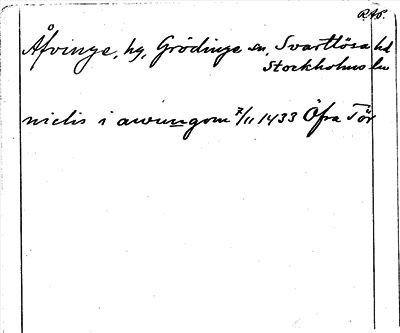 RAP.
Åfvinge, hg, Grödinge sn, Svartlösa hd
Stockholms ln
nielis i awungom 7/11 1433 Öfra Tör